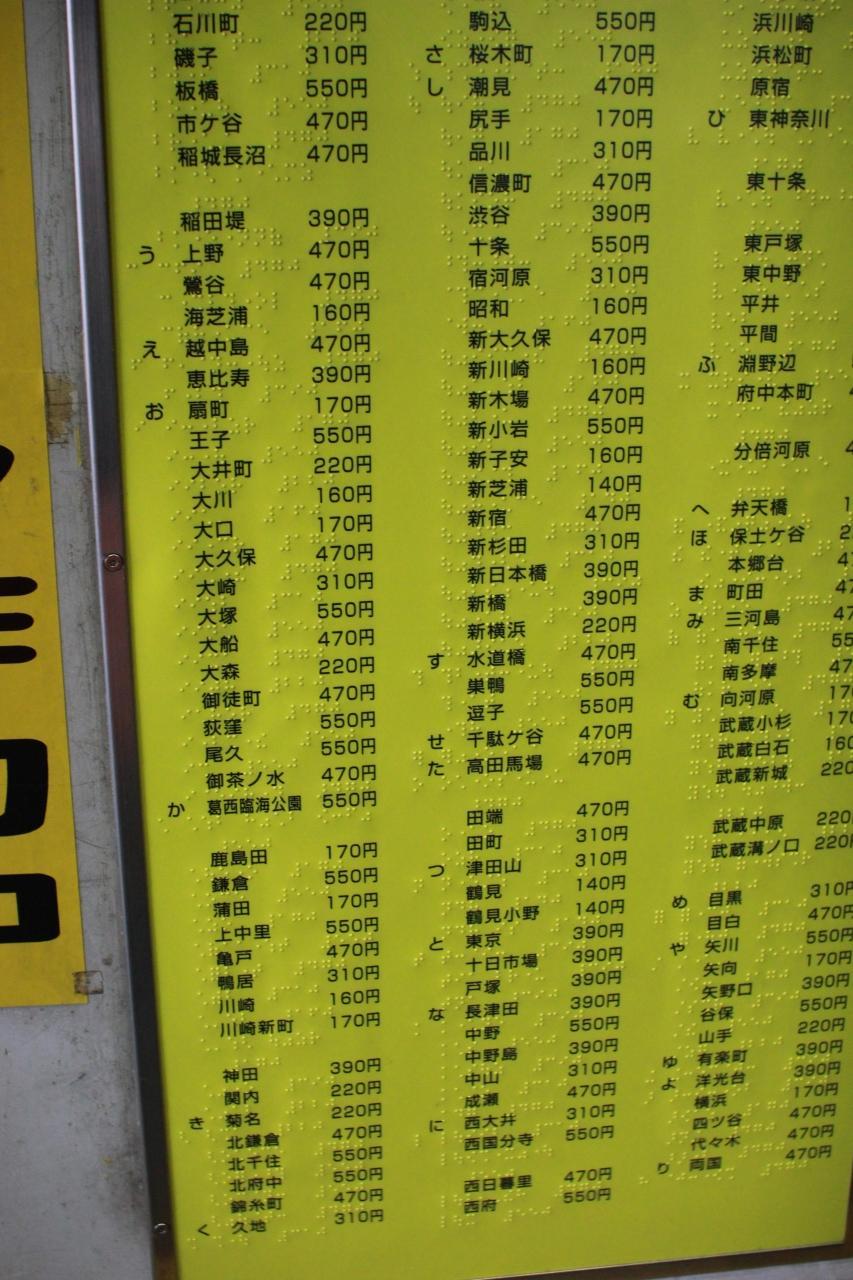 石川町 220円
磯子 310円
板橋 550円
市ケ谷 470円
稲城長沼 470円
稲田堤 390円
う 上野 470円
鶯谷 470円
海芝浦 160円
え 越中島 470円
恵比寿 390円
お 扇町 170円
王子 550円
大井町 220円
大川 160円
大口 170円
大久保 470円
大崎 310円
大塚 550円
大船 470円
大森 220円
御徒町 470円
荻窪 550円
尾久 550円
御茶ノ水 470円
か 葛西臨海公園 550円
鹿島田 170円
鎌倉 550円
蒲田 170円
上中里 550円
亀戸 470円
鴨居 310円
川崎 160円
川崎新町 170円
神田 390円
関内 220円
き 菊名 220円
北鎌倉 470円
北千住 550円
北府中 550円
錦糸町 470円
く 久地 310円
駒込 550円
さ 桜木町 170円
し 潮見 470円
尻手 170円
品川 310円
信濃町 470円
渋谷 390円
十条 550円
宿河原 310円
昭和 160円
新大久保 470円
新川崎 160円
新木場 470円
新小岩 550円
新子安 160円
新芝浦 140円
新宿 470円
新杉田 310円
新日本橋 390円
新橋 390円
新横浜 220円
す 水道橋 470円
巣鴨 550円
逗子 550円
せ 千駄ケ谷 470円
た 高田馬場 470円
田端 470円
田町 310円
つ 津田山 310円
鶴見 140円
鶴見小野 140円
と 東京 390円
十日市場 390円
戸塚 390円
な 長津田 390円
中野 550円
中野島 390円
中山 310円
成瀬 470円
に 西大井 310円
西国分寺 550円
西日暮里 470円
西府 550円
浜川崎
浜松町
原宿
ひ 東神奈川
東十条
東戸塚
東中野
平井
平間
ふ 淵野辺
府中本町
分倍河原
へ 弁天橋
ほ 保土ケ谷
本郷台
ま 町田
み 三河島
南千住
南多摩
む 向河原
武蔵小杉
武蔵白石
武蔵新城 220
武蔵中原 220
武蔵溝ノ口 220円
め 目黒 310円
目白 470円
や 矢川 550円
矢向 170円
矢野口 390円
谷保 550円
山手 220円
ゆ 有楽町 390円
よ 洋光台 390円
横浜 170円
四ツ谷 470円
代々木 470円
り 両国 470円